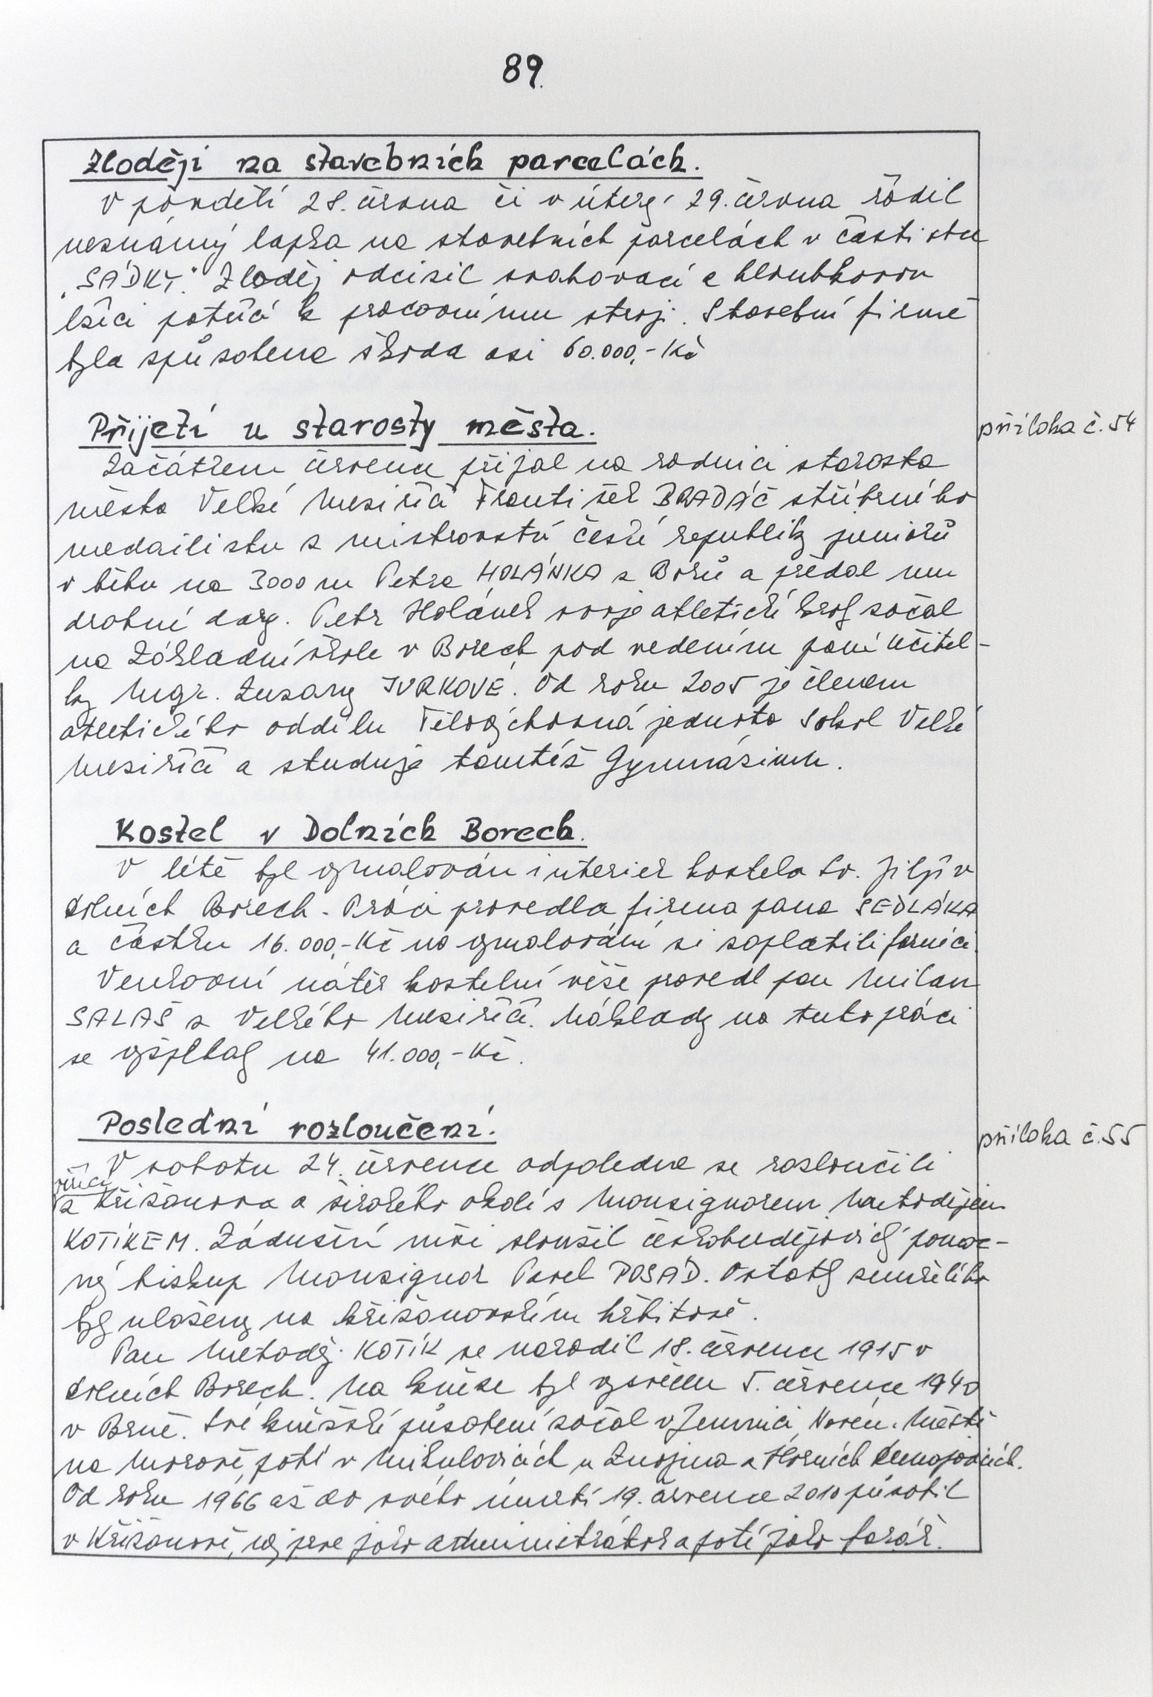 89.
Zloději na stavebních parcelách.
V pondělí 28. června či v úterý 29. června řádil
neznámý lapka na stavebních parcelách v části obce
„SÁDKY." Zloděj odcizil svahovací a hloubkovou
lžíci patřící k pracovnímu stroji. Stavební firmě
byla způsobena škoda asi 60.000,- Kč
Přijetí u starosty města.
příloha č. 54
Začátkem července přijal na radnici starosta
města Velké Meziříčí František BRADÁČ stříbrného
medailistu z mistrovství české republiky juniorů
v běhu na 3000 m Petra HOLÁNKA z Borů a předal mu
drobný dary. Petr Holánek svoje atletické kroky začal
na Základní škole v Borech pod vedením paní učitel-
ky Mgr. Zuzany JURKOVÉ. Od roku 2005 je členem
atletického oddílu Tělovýchovná jednota Sokol Velké
Meziříčí a studuje tamtéž Gymnázium.
Kostel v Dolních Borech.
V létě byl vymalován interier kostela sv. Jiljí v
Dolních Borech. Práci provedla firma pana SEDLÁKA
a částku 16.000,- Kč na vymalování si zaplatili farníci.
Venkovní nátěr kostelní věže provedl pan Milan
SALAŠ z Velkého Meziříčí. Náklady na tuto práci
se vyšplhaly na 41.000,- Kč.
Poslední rozloučení.
příloha č. 55
V sobotu 24. července odpoledne se rozloučili
věřící
z Křižanova a širokého okolí s Monsignorem Metodějem
KOTÍKEM. Zádušní mši sloužil českobudějovický pomoc-
ný biskup Monsignor Pavel POSÁD. Ostatky zemřelého
byly uloženy na křižanovském hřbitově.
Pan Metoděj KOTÍK se narodil 18. července 1915 v
Dolních Borech. Na kněze byl vysvěcen 5. července 1940
v Brně. Své kněžské působení začal v Jemnici, Novém Městě
na Moravě, poté v Mikulovicích u Znojma a Horních Dunajovicích.
Od roku 1966 až do svého úmrtí 19. července 2010 působil
v Křižanově, nejprve jako administrátor a poté jako farář.